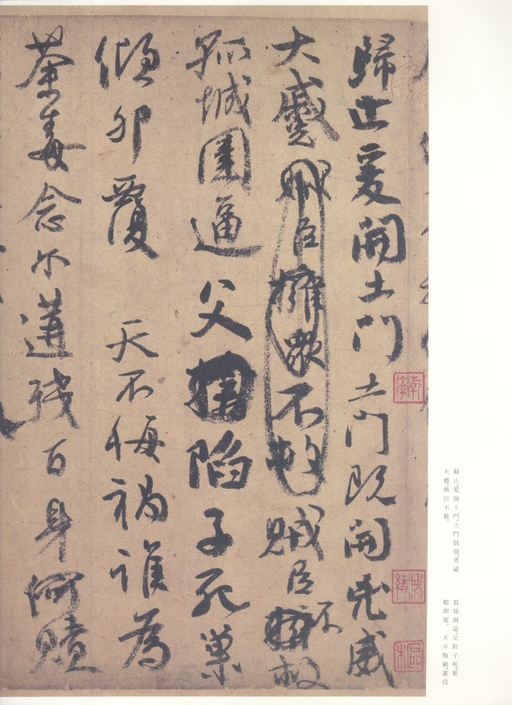 歸止爰開土門土門既開兇威
大蹙賊臣擁眾不救賊臣不擁救
孤城圍逼父陷子死巢
傾卵覆 天不悔禍誰為
荼毒念爾遘殘百身何贖
歸止爰開土門土門既開兇威
大蹙賊臣不救
孤城圍逼父陷子死巢
傾卵覆 天不悔禍誰為